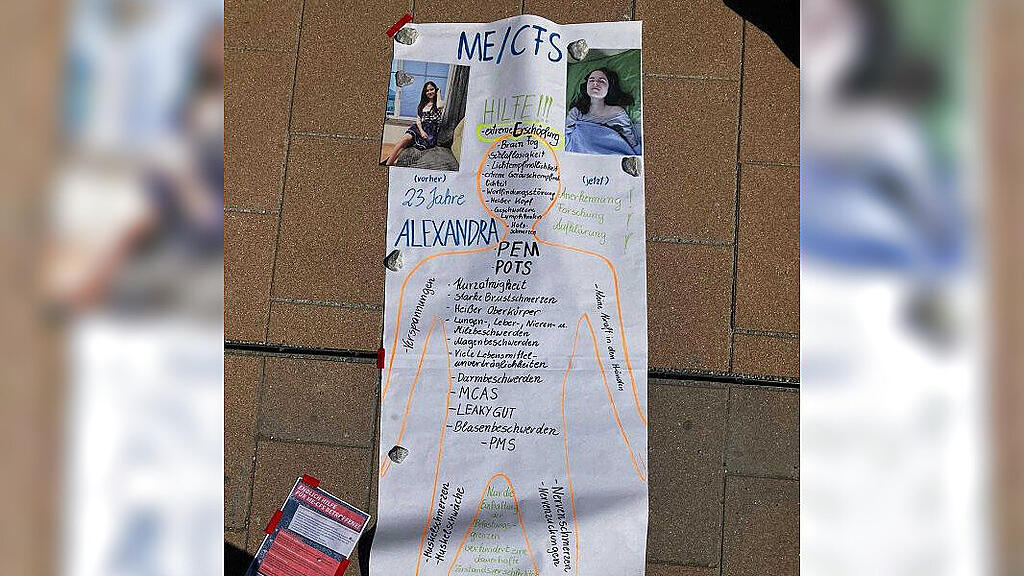 ME/CFS
HILFE!!!
-extreme Erschöpfung
- Brain Fog
- Schlaflosigkeit
- Lichtempfindlichkeit
-extreme Geräuschempfind-
lichkeit
- Wortfindungsstörung
- Heißer Kopf
- Geschwollene
Lymphknoten
- Hals-
schmerzen
(vorher)
23 Jahre
ALEXANDRA
(jetzt)
Anerkennung!
Forschung!
Aufklärung!
-PEM
-POTS
- Kurzatmigkeit
- Starke Brustschmerzen
- Heißer Oberkörper
- Lungen-, Leber-, Nieren- u.
Milzbeschwerden
- Magenbeschwerden
- Viele Lebensmittel-
unverträglichkeiten
- Darmbeschwerden
- MCAS
- LEAKY GUT
- Blasenbeschwerden
- PMS
- Verspannungen
- Keine Kraft in den Händen
- Muskelschmerzen
- Muskelschwäche
- Nervenschmerzen
- Nervenzuckungen
Nur die
Einhaltung
der
Belastungs-
grenzen
verhindert eine
dauerhafte